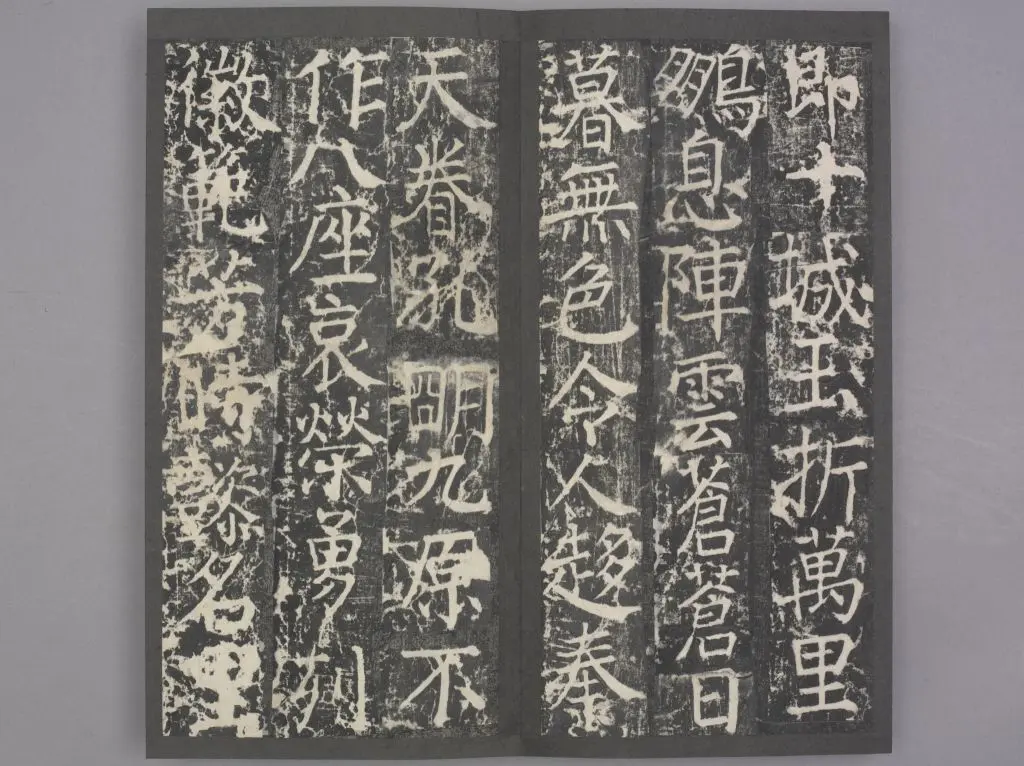 即十城玉折萬里
鵬息陣雲蒼蒼日
暮無色令人趍奉
天眷孔明九源不
作八座哀榮勇列
徽範芳時名里